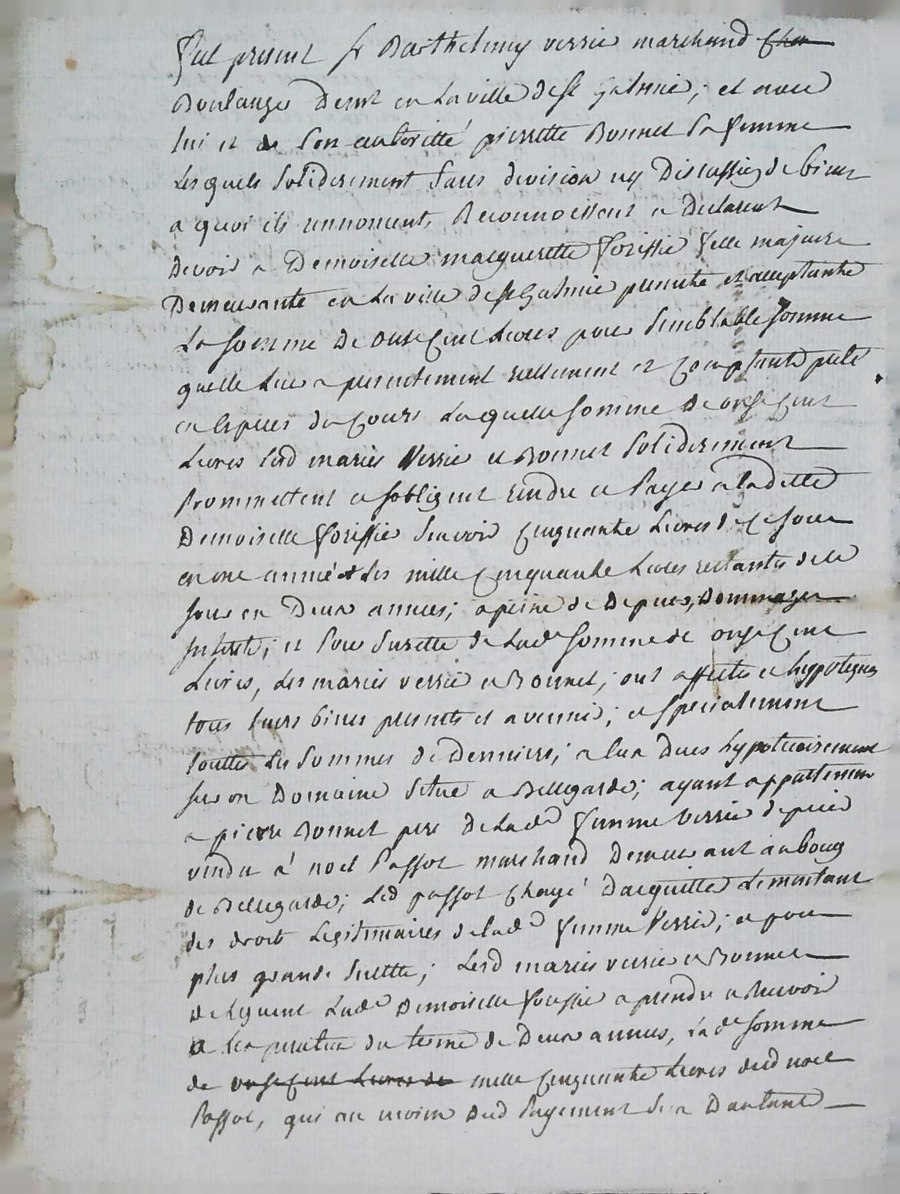 fut present sr Barthelemy verrie marchand
Boulanger demt en la ville de st galmie; et avec
lui et de son authorité pierrette Bonnet sa femme
Lesquels solidairement sans division ny discussion de biens
a quoi ils renoncent, Reconnoissent et déclarent
devoir a Demoiselle margueritte forissie fille majeure
Demeurante en la ville de st Galmie presente et acceptante
La somme de onse Cent Livres pour semblable somme
quelle leur a presentement reellement et Comptant preté
en especes du Cours Laquelle somme de onse Cent
Livres lesd mariés Verrie et Bonnet solidairement
Promettent et sobligent rendre et Payer a ladette
Demoiselle forissie scavoir Cinquante Livres de ce jour
en une année & les mille Cinquante Livres restantes de ce
jour en Deux années; a peine de Depens, Dommages
interets; et pour surette de lade somme de onse Cent
Livres, Les mariés verrie et Bonnet; ont affectés et hypotequés
tous leurs biens presents et avenir; et specialement
toutte les sommes de deniers; a eux dues hypotecairement
sur un Domaine situé a Bellegarde; ayant appartenu
a pierre Bonnet pere de lade femme verrie depuis
vendu a noel Passot marchand demeurant au bourg
de Bellegarde; Led passot Chargé Dacquitter Le montant
des droits Legitimaires de lade femme Verrie; et pour
plus grande surette; Lesd mariés verrie et Bonnet
deleguent lade Demoiselle forissie a prendre et Recevoir
a du terme de Deux années, lade somme
de onse Cent Livres de mille Cinquante Livres dud noel
Passot, qui au moien dud Payement sera Dautant